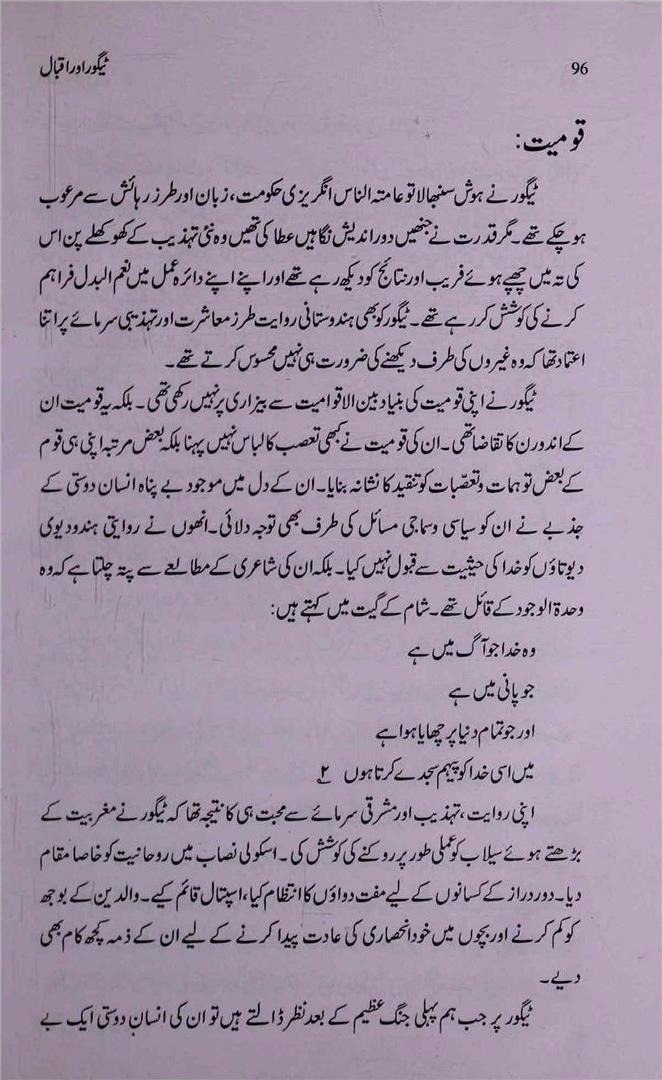 96
ٹیگور اور اقبال
قومیت:
ٹیگور نے ہوش سنبھالا تو عامتہ الناس انگریزی حکومت، زبان اور طرز رہائش سے مرعوب
ہو چکے تھے۔ مگر قدرت نے جنھیں دور اندیش نگاہیں عطا کی تھیں وہ نئی تہذیب کے کھوکھلے پن اس
کی تہ میں چھپے ہوئے فریب اور نتائج کو دیکھ رہے تھے اور اپنے اپنے دائرہ عمل میں نعم البدل فراہم
کرنے کی کوشش کر رہے تھے۔ ٹیگور کو بھی ہندوستانی روایت طرز معاشرت اور تہذیبی سرمائے پر اتنا
اعتماد تھا کہ وہ غیروں کی طرف دیکھنے کی ضرورت ہی نہیں محسوس کرتے تھے۔
ٹیگور نے اپنی قومیت کی بنیاد بین الاقوامیت سے بیزاری پر نہیں رکھی تھی۔ بلکہ یہ قومیت ان
کے اندورن کا تقاضا تھی۔ ان کی قومیت نے کبھی تعصب کا لباس نہیں پہنا بلکہ بعض مرتبہ اپنی ہی قوم
کے بعض توہمات و تعصّبات کو تنقید کا نشانہ بنایا۔ ان کے دل میں موجود بے پناہ انسان دوستی کے
جذبے نے ان کو سیاسی و سماجی مسائل کی طرف بھی توجہ دلائی۔ انھوں نے روایتی ہندو دیوی
دیوتاؤں کو خدا کی حیثیت سے قبول نہیں کیا۔ بلکہ ان کی شاعری کے مطالعے سے پتہ چلتا ہے کہ وہ
وحدۃ الوجود کے قائل تھے۔ شام کے گیت میں کہتے ہیں:
وہ خدا جو آگ میں ہے
جو پانی میں ہے
اور جو تمام دنیا پر چھایا ہوا ہے
میں اسی خدا کو پیہم سجدے کرتا ہوں ۲
اپنی روایت، تہذیب اور مشرقی سرمائے سے محبت ہی کا نتیجہ تھا کہ ٹیگور نے مغربیت کے
بڑھتے ہوئے سیلاب کو عملی طور پر روکنے کی کوشش کی۔ اسکولی نصاب میں روحانیت کو خاصا مقام
دیا۔ دور دراز کے کسانوں کے لیے مفت دواؤں کا انتظام کیا، اسپتال قائم کیے۔ والدین کے بوجھ
کو کم کرنے اور بچوں میں خود انحصاری کی عادت پیدا کرنے کے لیے ان کے ذمہ کچھ کام بھی
دیے۔
ٹیگور پر جب ہم پہلی جنگ عظیم کے بعد نظر ڈالتے ہیں تو ان کی انسان دوستی ایک بے